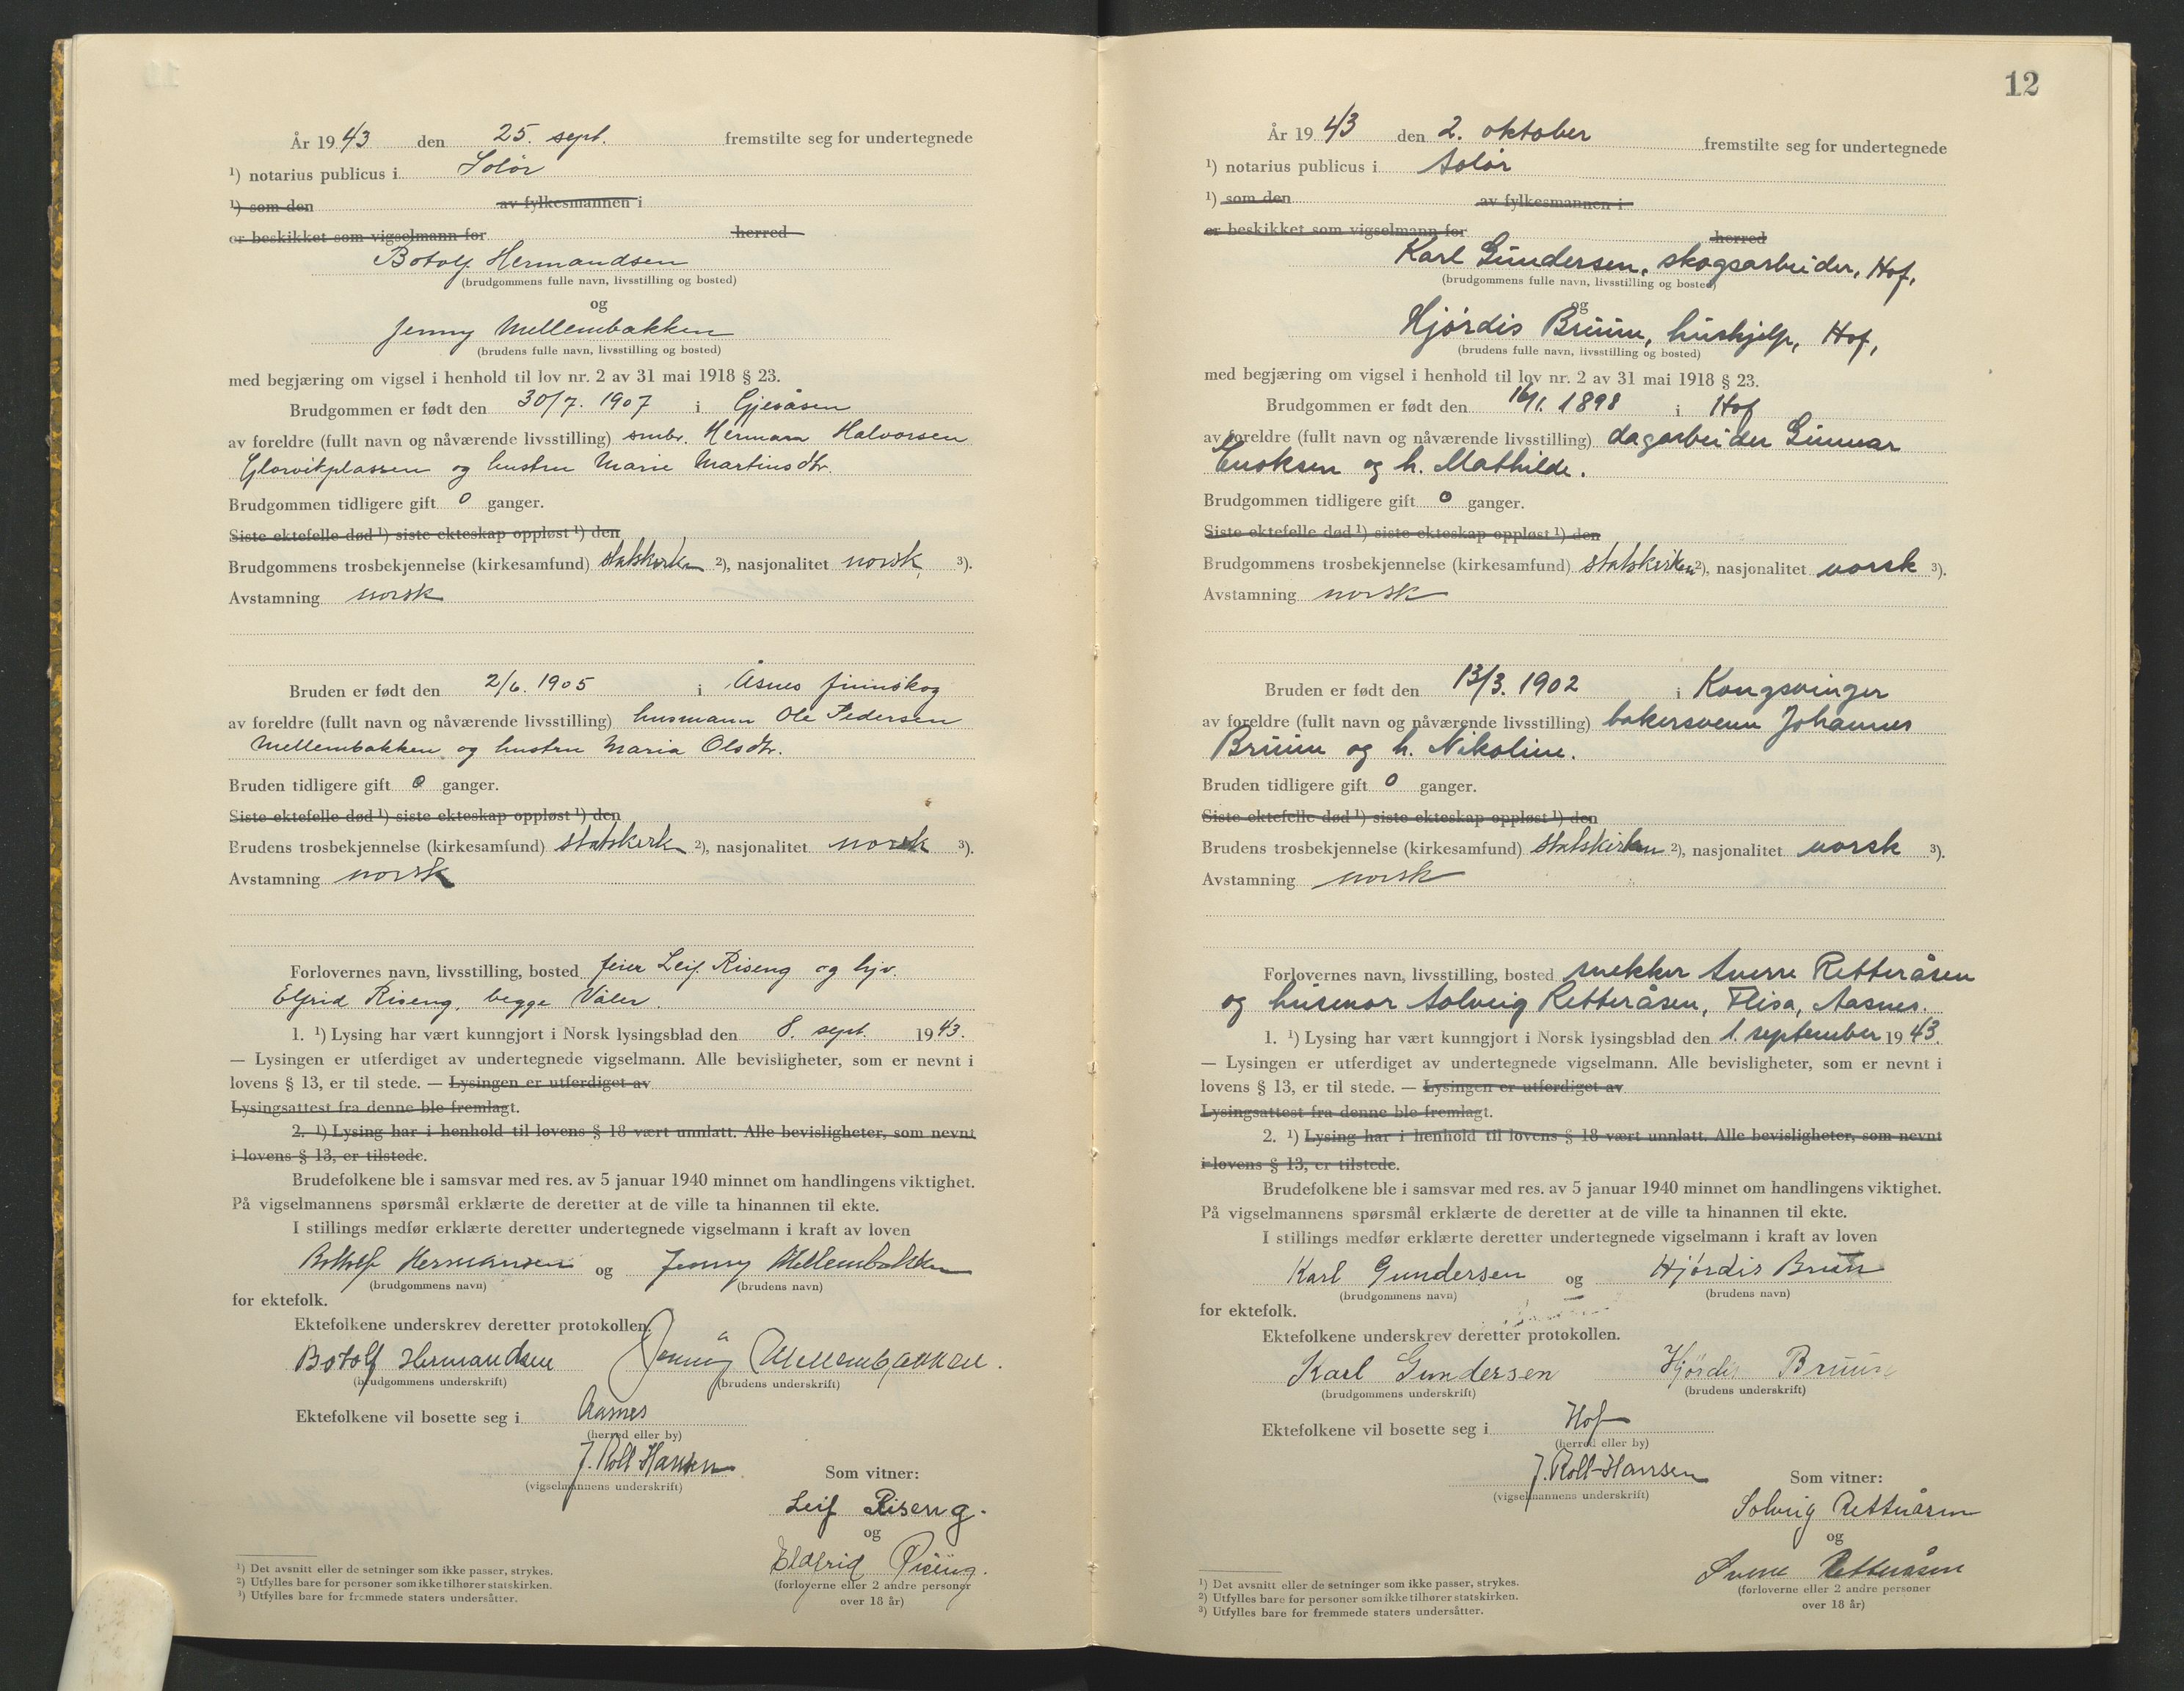 År 1943 den 25. sept. fremstilte seg for undertegnede
¹) notarius publicus i Solør
¹) som den av fylkesmannen i
er beskikket som vigselmann for herred
Botolf Hermandsen
(brudgommens fulle navn, livsstilling og bosted)
og
Jenny Mellembakken
(brudens fulle navn, livsstilling og bosted)
med begjæring om vigsel i henhold til lov nr. 2 av 31 mai 1918 § 23.
Brudgommen er født den 30/7. 1907 i Gjesåsen
av foreldre (fullt navn og nåværende livsstilling) smbr. Herman Halvorsen
Glorvikplassen og hustru Marie Martinsdtr.
Brudgommen tidligere gift 0 ganger.
Siste ektefelle død ¹) siste ekteskap oppløst ¹) den
Brudgommens trosbekjennelse (kirkesamfund) statskirken ²), nasjonalitet norsk ³).
Avstamning norsk
Bruden er født den 2/6. 1905 i Åsnes finnskog
av foreldre (fullt navn og nåværende livsstilling) husmann Ole Pedersen
Mellembakken og hustru Maria Olsdtr.
Bruden tidligere gift 0 ganger.
Siste ektefelle død ¹) siste ekteskap oppløst ¹) den
Brudens trosbekjennelse (kirkesamfund) statskirk ²), nasjonalitet norsk ³).
Avstamning norsk
Forlovernes navn, livsstilling, bosted feier Leif Riseng og hjv.
Elfrid Riseng, begge Våler.
1. ¹) Lysing har vært kunngjort i Norsk lysingsblad den 8. sept. 1943.
— Lysingen er utferdiget av undertegnede vigselmann. Alle bevisligheter, som er nevnt i
lovens § 13, er til stede. — Lysingen er utferdiget av
Lysingsattest fra denne ble fremlagt.
2. ¹) Lysing har i henhold til lovens § 18 vært unnlatt. Alle bevisligheter, som nevnt
i lovens § 13, er tilstede.
Brudefolkene ble i samsvar med res. av 5 januar 1940 minnet om handlingens viktighet.
På vigselmannens spørsmål erklærte de deretter at de ville ta hinannen til ekte.
I stillings medfør erklærte deretter undertegnede vigselmann i kraft av loven
Bottolf Hermansen og Jenny Mellembakken
(brudgommens navn) (brudens navn)
for ektefolk.
Ektefolkene underskrev deretter protokollen.
Botolf Hermandsen Jenny Mellembakken.
(brudgommens underskrift) (brudens underskrift)
Ektefolkene vil bosette seg i Aasnes
(herred eller by)
J. Roll-Hansen
(vigselmannens underskrift)
Som vitner:
Leif Riseng.
og
Eldfrid Riseng.
(forloverne eller 2 andre personer
over 18 år)
¹) Det avsnitt eller de setninger som ikke passer, strykes.
²) Utfylles bare for personer som ikke tilhører statskirken.
³) Utfylles bare for fremmede staters undersåtter.
12
År 1943 den 2. oktober fremstilte seg for undertegnede
¹) notarius publicus i Solør
¹) som den av fylkesmannen i
er beskikket som vigselmann for herred
Karl Gundersen, skogsarbeider, Hof,
(brudgommens fulle navn, livsstilling og bosted)
og
Hjørdis Bruun, hushjelp, Hof,
(brudens fulle navn, livsstilling og bosted)
med begjæring om vigsel i henhold til lov nr. 2 av 31 mai 1918 § 23.
Brudgommen er født den 16/1. 1898 i Hof
av foreldre (fullt navn og nåværende livsstilling) dagarbeider Gunnar
Enoksen og h. Mathilde.
Brudgommen tidligere gift 0 ganger.
Siste ektefelle død ¹) siste ekteskap oppløst ¹) den
Brudgommens trosbekjennelse (kirkesamfund) statskirken ²), nasjonalitet norsk ³).
Avstamning norsk
Bruden er født den 13/3. 1902 i Kongsvinger
av foreldre (fullt navn og nåværende livsstilling) bakersvenn Johannes
Bruun og h. Nikoline.
Bruden tidligere gift 0 ganger.
Siste ektefelle død ¹) siste ekteskap oppløst ¹) den
Brudens trosbekjennelse (kirkesamfund) statskirken ²), nasjonalitet norsk ³).
Avstamning norsk
Forlovernes navn, livsstilling, bosted snekker Sverre Retteråsen
og husmor Solveig Retteråsen, Flisa, Aasnes.
1. ¹) Lysing har vært kunngjort i Norsk lysingsblad den 1. september 1943.
— Lysingen er utferdiget av undertegnede vigselmann. Alle bevisligheter, som er nevnt i
lovens § 13, er til stede. — Lysingen er utferdiget av
Lysingsattest fra denne ble fremlagt.
2. ¹) Lysing har i henhold til lovens § 18 vært unnlatt. Alle bevisligheter, som nevnt
i lovens § 13, er tilstede.
Brudefolkene ble i samsvar med res. av 5 januar 1940 minnet om handlingens viktighet.
På vigselmannens spørsmål erklærte de deretter at de ville ta hinannen til ekte.
I stillings medfør erklærte deretter undertegnede vigselmann i kraft av loven
Karl Gundersen og Hjørdis Bruun
(brudgommens navn) (brudens navn)
for ektefolk.
Ektefolkene underskrev deretter protokollen.
Karl Gundersen Hjørdis Bruun
(brudgommens underskrift) (brudens underskrift)
Ektefolkene vil bosette seg i Hof
(herred eller by)
J. Roll-Hansen
(vigselmannens underskrift)
Som vitner:
Solveig Retteråsen
og
Sverre Retteråsen
(forloverne eller 2 andre personer
over 18 år)
¹) Det avsnitt eller de setninger som ikke passer, strykes.
²) Utfylles bare for personer som ikke tilhører statskirken.
³) Utfylles bare for fremmede staters undersåtter.